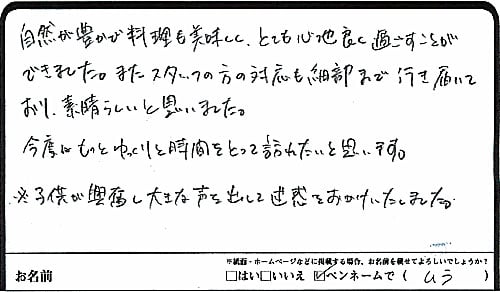 自然が豊かで料理も美味しく、とても心地良く過ごすことが
できました。またスタッフの方の対応も細部まで行き届いて
おり、素晴らしいと思いました。
今度はもっとゆっくりと時間をとって訪れたいと思います。
※子供が興奮し大きな声を出して迷惑をおかけいたしました。
※紙面・ホームページなどに掲載する場合、お名前を載せてよろしいでしょうか？
お名前 □はい□いいえ ☑ペンネームで ( ムラ )